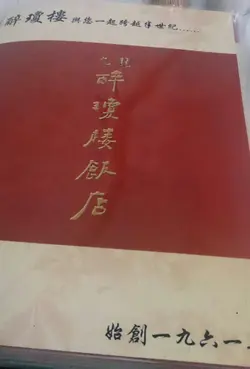 醉瓊樓 與您一起跨越半世紀......
九龍
醉瓊樓飯店
始創一九六一